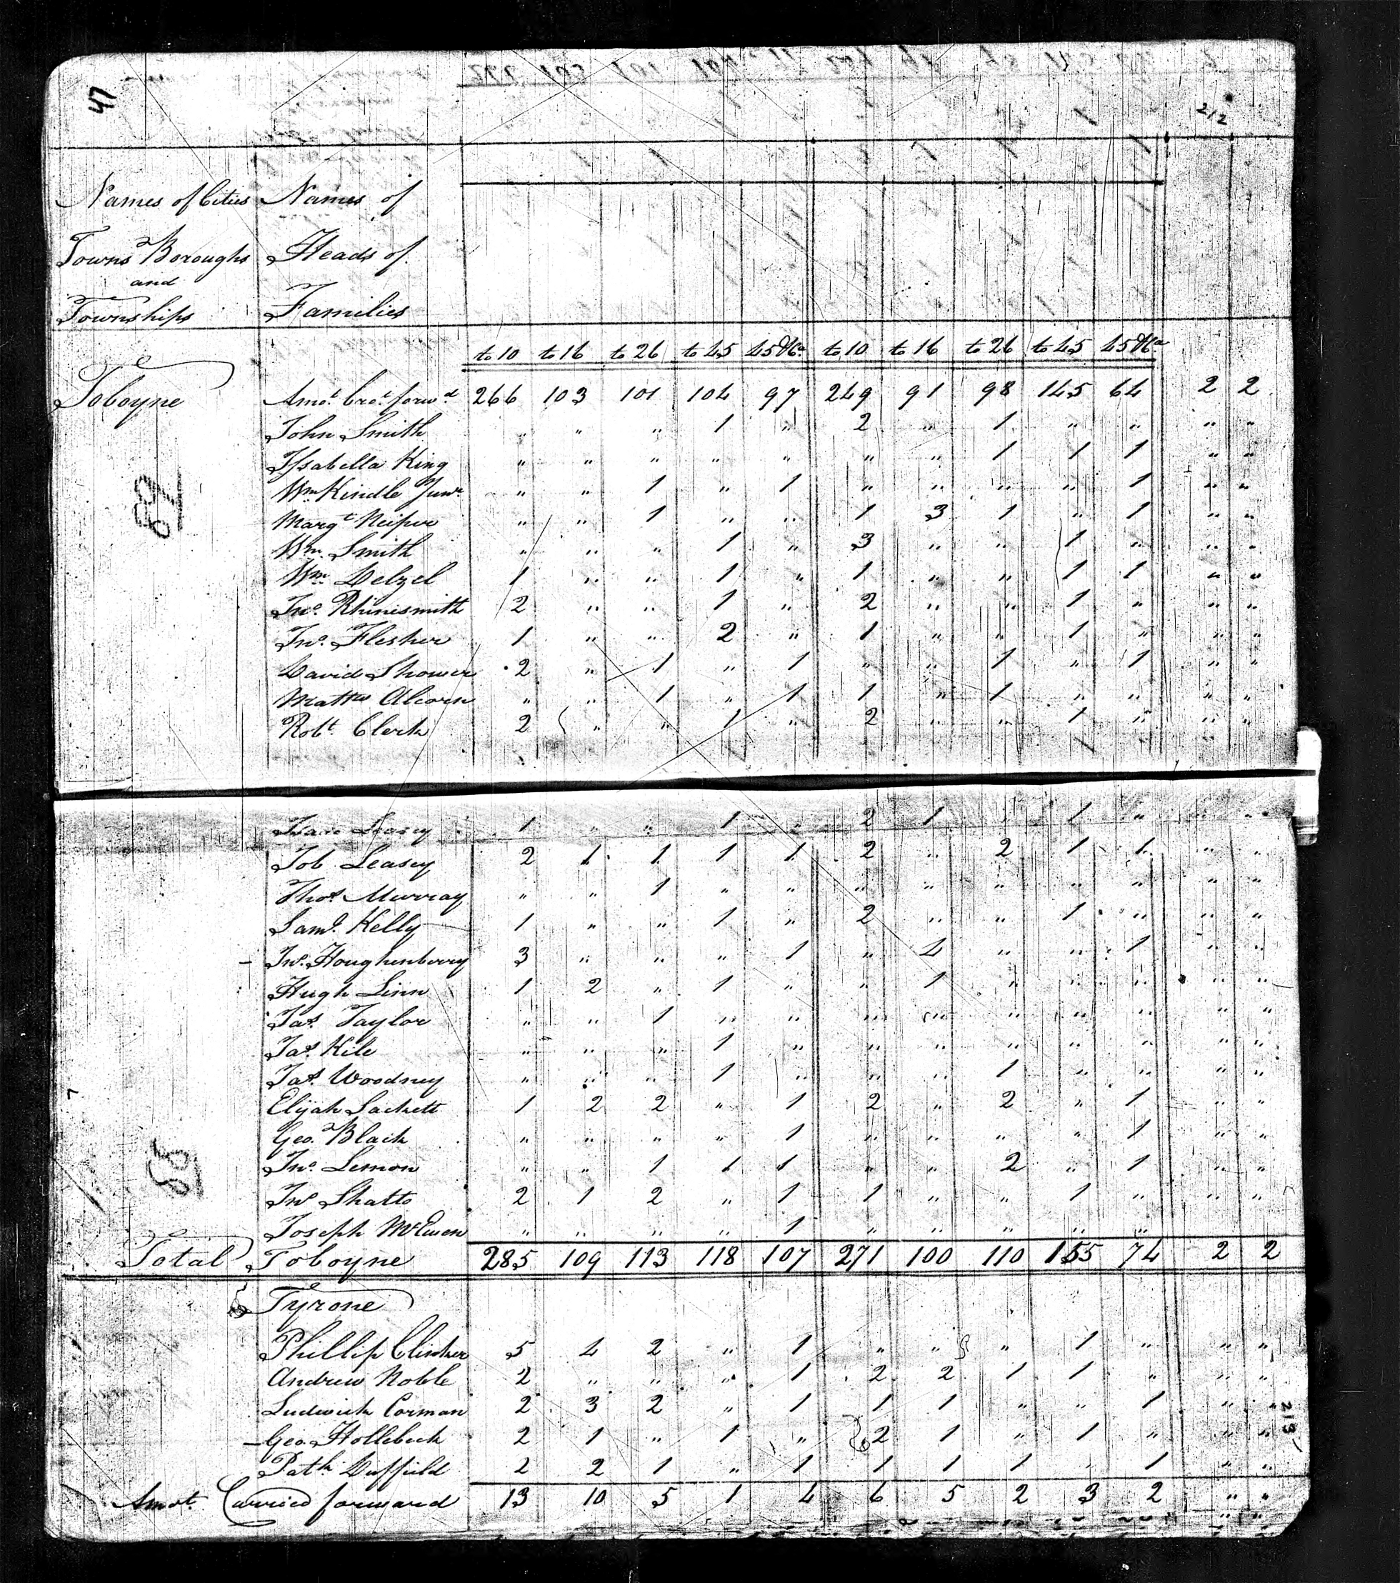 47
212
Names of Cities Names of
Towns Boroughs Heads of
and
Townships Families
to 10 to 16 to 26 to 45 45 &c to 10 to 16 to 26 to 45 45 &c
Toboyne Amot. brot. forwd 266 103 101 104 97 249 91 98 145 64 2 2
John Smith " " " 1 " 2 " 1 " " " "
Issabella King " " " " " " " 1 1 1 " "
Wm Kindle Junr " " 1 " 1 " " " " 1 " "
Margt Neiper " " 1 " " 1 3 1 " 1 " "
Wm Smith " " " 1 " 3 " " 1 " " "
Wm Delzel 1 " " 1 " 1 " " 1 1 " "
Jno. Rhinesmith 2 " " 1 " 2 " " 1 " " "
Jno. Flesher 1 " " 2 " 1 " " 1 " " "
David Shower 2 " 1 " 1 " " 1 " 1 " "
Matths Alcorn " " 1 " 1 1 " 1 " " " "
Robt Clerk 2 " " 1 " 2 " " 1 " " "
1 " " 1 " 2 1 " 1 " " "
Job Leasey 2 1 1 1 1 2 " 2 1 1 " "
Thos. Murray " " 1 " " " " " " " " "
Saml. Kelly 1 " " 1 " 2 " " 1 " " "
Jno. Houghenberry 3 " " " 1 " 4 " " 1 " "
Hugh Linn 1 2 " 1 " " 1 " " " " "
Jas. Taylor " " 1 " " " " " " " " "
Jas. Kile " " " 1 " " " " " " " "
Jas. Woodney " " " 1 " " " 1 " " " "
Elijah Sackett 1 2 2 " 1 2 " 2 " 1 " "
Geo. Black " " " " 1 " " " " 1 " "
Jno. Lemon " " 1 1 1 " " 2 " 1 " "
Jno Shatto 2 1 2 " 1 1 " " 1 " " "
Joseph McEwen " " " " 1 " " " " " " "
Total Toboyne 285 109 113 118 107 271 100 110 155 74 2 2
Tyrone
Phillip Clinker 5 4 2 " 1 " " " 1 " " "
Andrew Noble 2 " " " 1 2 2 1 1 " " "
Ludwick Corman 2 3 2 " 1 1 1 " " 1 " "
Geo. Hollebeck 2 1 " 1 " 2 1 " 1 " " "
Patk Duffield 2 2 1 " 1 1 1 1 " 1 " "
Amot. Carried forward 13 10 5 1 4 6 5 2 3 2 " "
213